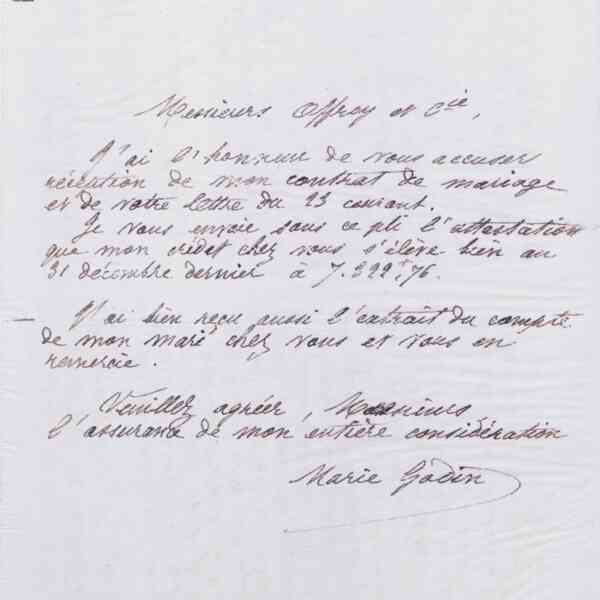 Messieurs Offroy et Cie,
J'ai l'honneur de vous accuser
réception de mon contrat de mariage
et de votre lettre du 23 courant.
Je vous envoie sous ce pli l'attestation
que mon crédit chez vous s'élève bien au
31 décembre dernier à 7.322f.76.
J'ai bien reçu aussi l'extrait du compte
de mon mari chez vous et vous en
remercie.
Veuillez agréer, Messieurs
l'assurance de mon entière considération
Marie Godin